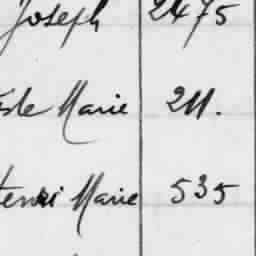 Joseph 2475
Marie 211.
Henri Marie 535